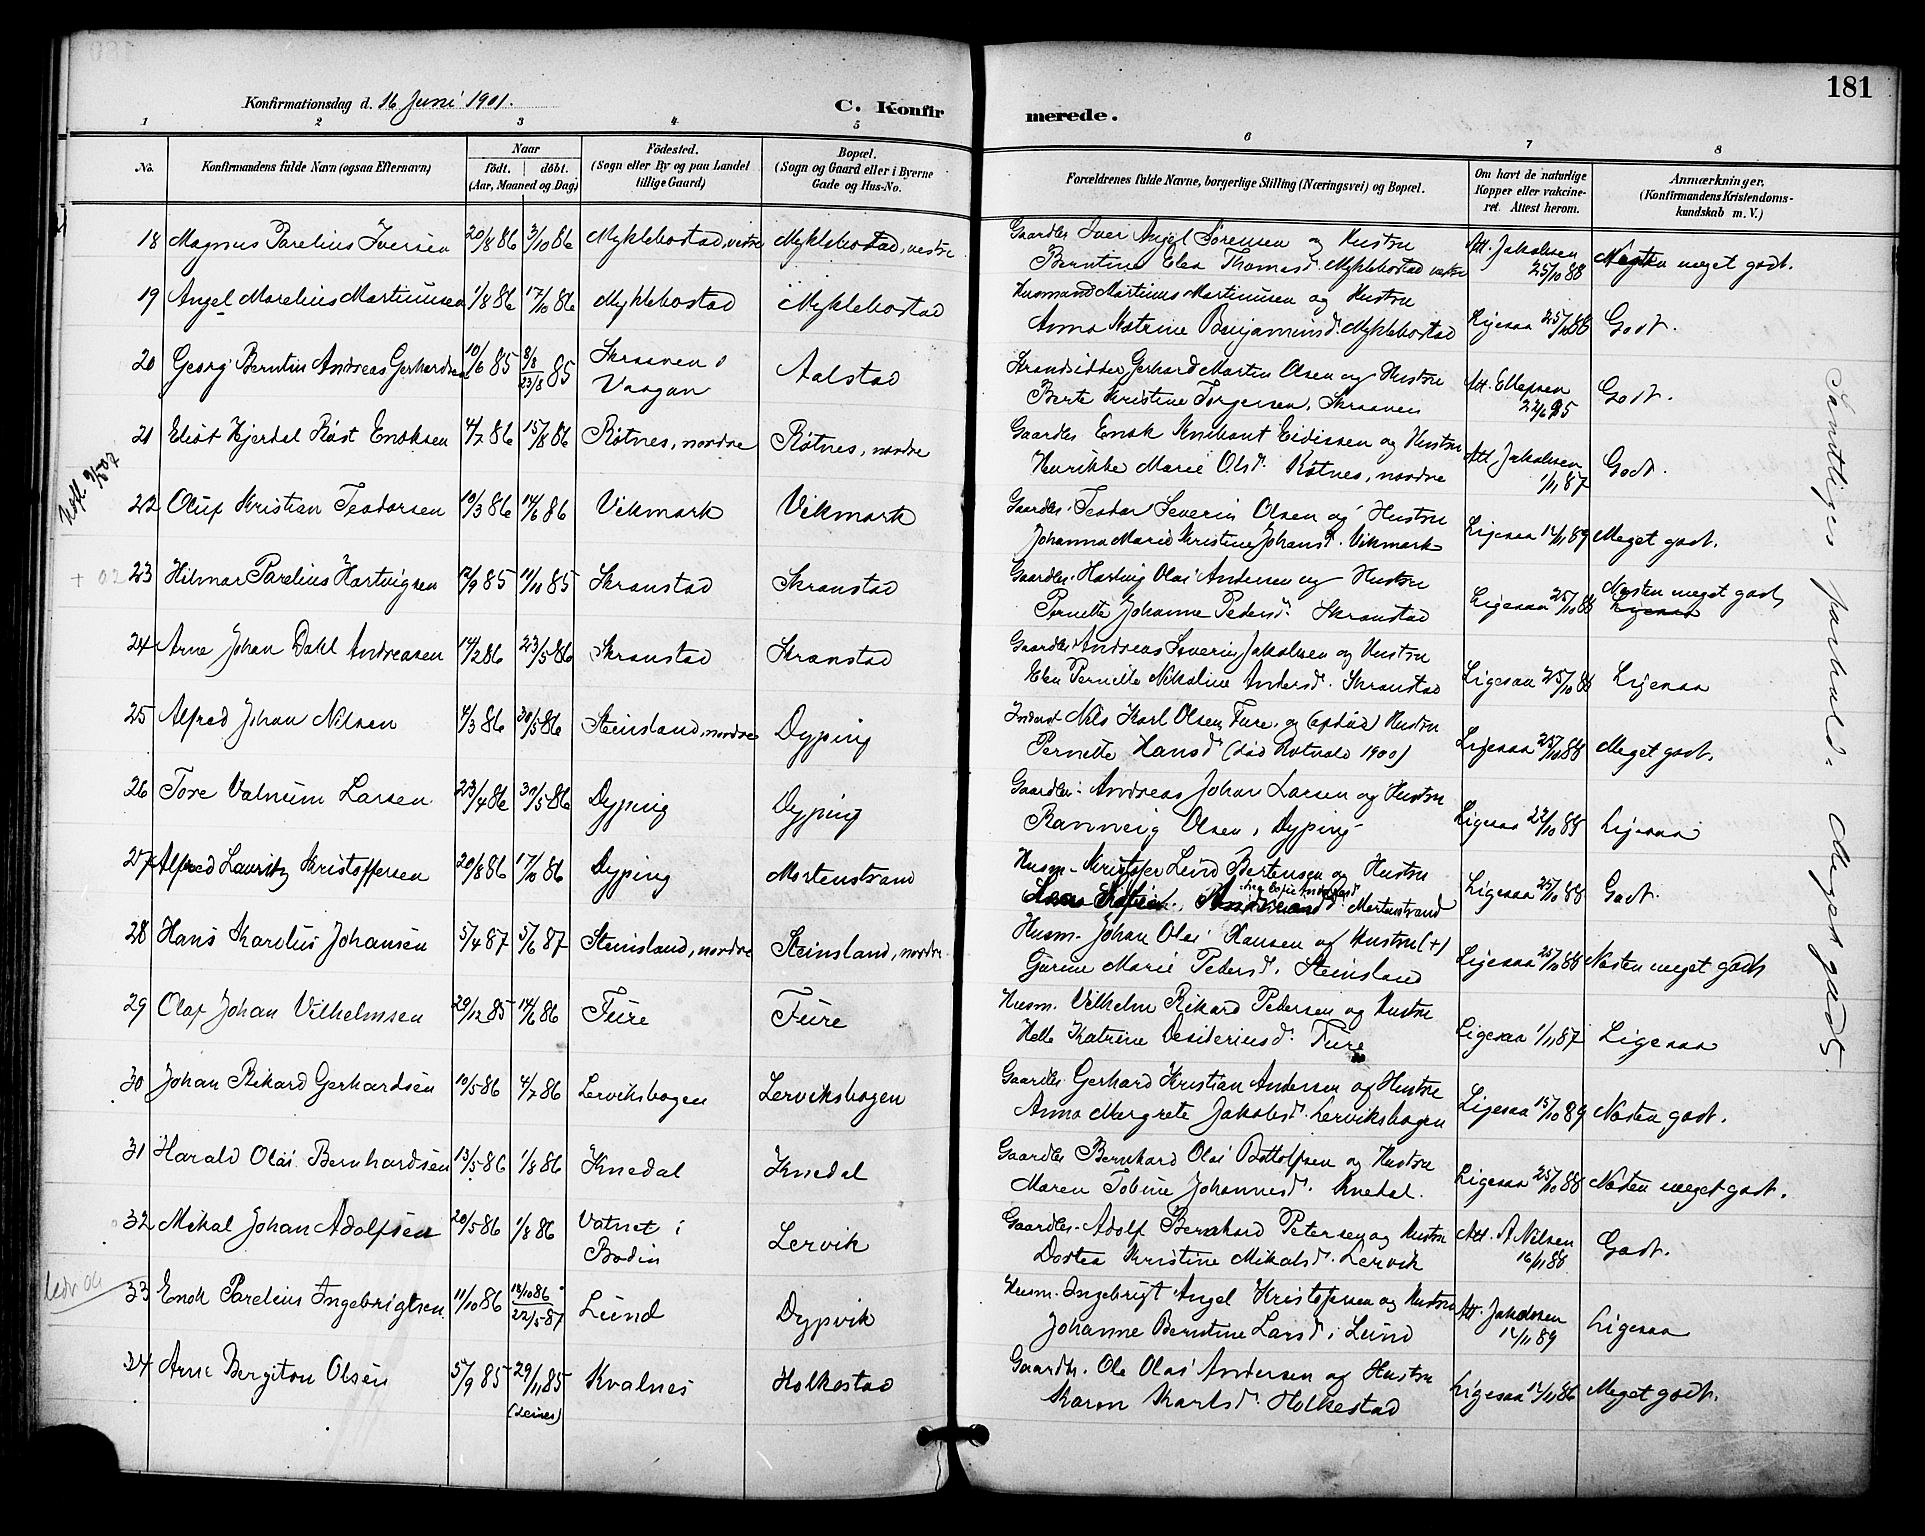 181
Konfirmationsdag d. 16 Juni 1901.
C. Konfirmerede.
1 2 3 4 5 6 7 8
No. Konfirmandens fulde Navn (ogsaa Efternavn) Naar födt. döbt. (Aar, Maaned og Dag) Födested. (Sogn eller By og paa Landet tillige Gaard) Bopæl. (Sogn og Gaard eller i Byerne Gade og Hus-No. Forældrenes fulde Navne, borgerlige Stilling (Næringsvei) og Bopæl. Om havt de naturlige Kopper eller vakcineret. Attest herom. Anmærkninger, (Konfirmandens Kristendomskundskab m. V.)
18 Magnus Parelius Iversen 20/8 86 3/10 86 Myklebostad, vestre Myklebostad, vestre Gaardbr. Iver Angel Sörensen og Hustru Att. Jakobsen Næsten meget godt.
Berntine Elea Thomasd. Myklebostad vestre 25/10 88
19 Angel Marelius Martinusen 1/8 86 17/10 86 Myklebostad Myklebostad Husmand Martinus Martinusen og Hustru
Anna Katrine Benjaminsd. Myklebostad Ligesaa 25/10 88 Godt.
20 Georg Berntin Andreas Gerhardsen 10/6 85 8/8 23/8 85 Skraaven i Vaagan Aalstad Strandsidder Gerhard Morten Olsen og Hustru Att. Ellefsen Godt.
Berte Kristine Torgersen, Skraaven
21 Eliot Hjerdal Röst Enoksen 4/7 86 15/8 86 Rötnes, nordre Rötnes, nordre Gaardbr. Enok Knibant Eidissen og Hustru Att. Jakobsen Godt.
Henrikke Marie Olsd. Rötnes, nordre 1/11 87
22 Oluf Kristian Teodorsen 10/3 86 14/6 86 Vikmark Vikmark Gaardbr. Teodor Severin Olsen og Hustru
Johanna Marie Kristine Johansd. Vikmark Ligesaa 14/11 89 Meget godt.
+ 02 23 Hilmar Parelius Hartvigsen 12/9 85 11/10 85 Skranstad Skranstad Gaardbr. Hartvig Olai Andersen og Hustru Næsten meget godt
Pernette Johanne Pedersd. Skranstad Ligesaa 25/10 88 Ligesaa
24 Arne Johan Dahl Andreasen 14/2 86 23/5 86 Skranstad Skranstad Gaardbr. Andreas Severin Jakobsen og Hustru
Elen Pernille Nikoline Andersd. Skranstad Ligesaa 25/10 88 Ligesaa
25 Alfred Johan Nilsen 4/3 86 30/5 86 Steinsland, nordre Dyping Inderst Nils Karl Olsen, Fure, og (afdöd) Hustru
Pernette Hansd. (död Rotvold 1900) Ligesaa 25/10 88 Meget godt.
26 Tore Valnum Larsen 23/4 86 30/5 86 Dyping Dyping Gaardbr. Andreas Johan Larsen og Hustru
Ranneig Olsen, Dyping Ligesaa 22/10 88 Ligesaa
27 Alfred Lauritz Kristoffersen 20/8 86 17/10 86 Dyping Mortenstrand Husm. Kristoffer Leind Bertensen og Hustru
Mortenstrand Ligesaa 25/10 88 Godt.
28 Hans Karolius Johansen 5/4 87 5/6 87 Steinsland, nordre Steinsland, nordre Husm. Johan Olai Hansen og Hustru (+)
Gurine Marie Pedersd. Steinsland Ligesaa 25/10 88 Næsten meget godt
29 Olaf Johan Vilhelmsen 29/12 85 14/6 86 Fure Fure Husm. Vilhelm Rikard Pedersen og Hustru
Helle Katrine Desideriusd. Fure Ligesaa 1/11 87 Ligesaa
30 Johan Rikard Gerhardsen 10/5 86 4/7 86 Lerviksbogen Lerviksbogen Gaardbr. Gerhard Kristian Andersen og Hustru
Anna Mergrete Jakobsd. Lerviksbogen Ligesaa 15/10 89 Næsten godt.
31 Harald Olai Bernhardsen 13/5 86 1/8 86 Knedal Knedal Gaardbr. Bernhard Olai Bottolfsen og Hustru
Maren Tobine Johannesd. Knedal. Ligesaa 25/10 88 Næsten meget godt.
32 Mikal Johan Adolfsen 20/5 86 1/8 86 Vatnet i Bodin Lervik Gaardbr. Adolf Bernhard Petersen og Hustru Att. A Nilsen Godt.
Dortea Kristine Mikalsd. Lervik 16/11 88
33 Enok Parelius Ingebrigtsen 11/10 86 14/10 86 22/5 87 Lund Dypvik Husm. Ingebrigt Angel Kristofersen og Hustru Att. Jakobsen Ligesaa
Johanne Berntine Larsd. i Lund 14/11 89
34 Arne Bergiton Olsen 5/9 85 29/11 85 (Leines) Kvalnes Holkestad Gaardbr. Ole Olai Andersen og Hustru
Karen Karlsd. Holkestad Ligesaa 12/11 86 Meget godt.
Samtliges forhold: Meget godt.